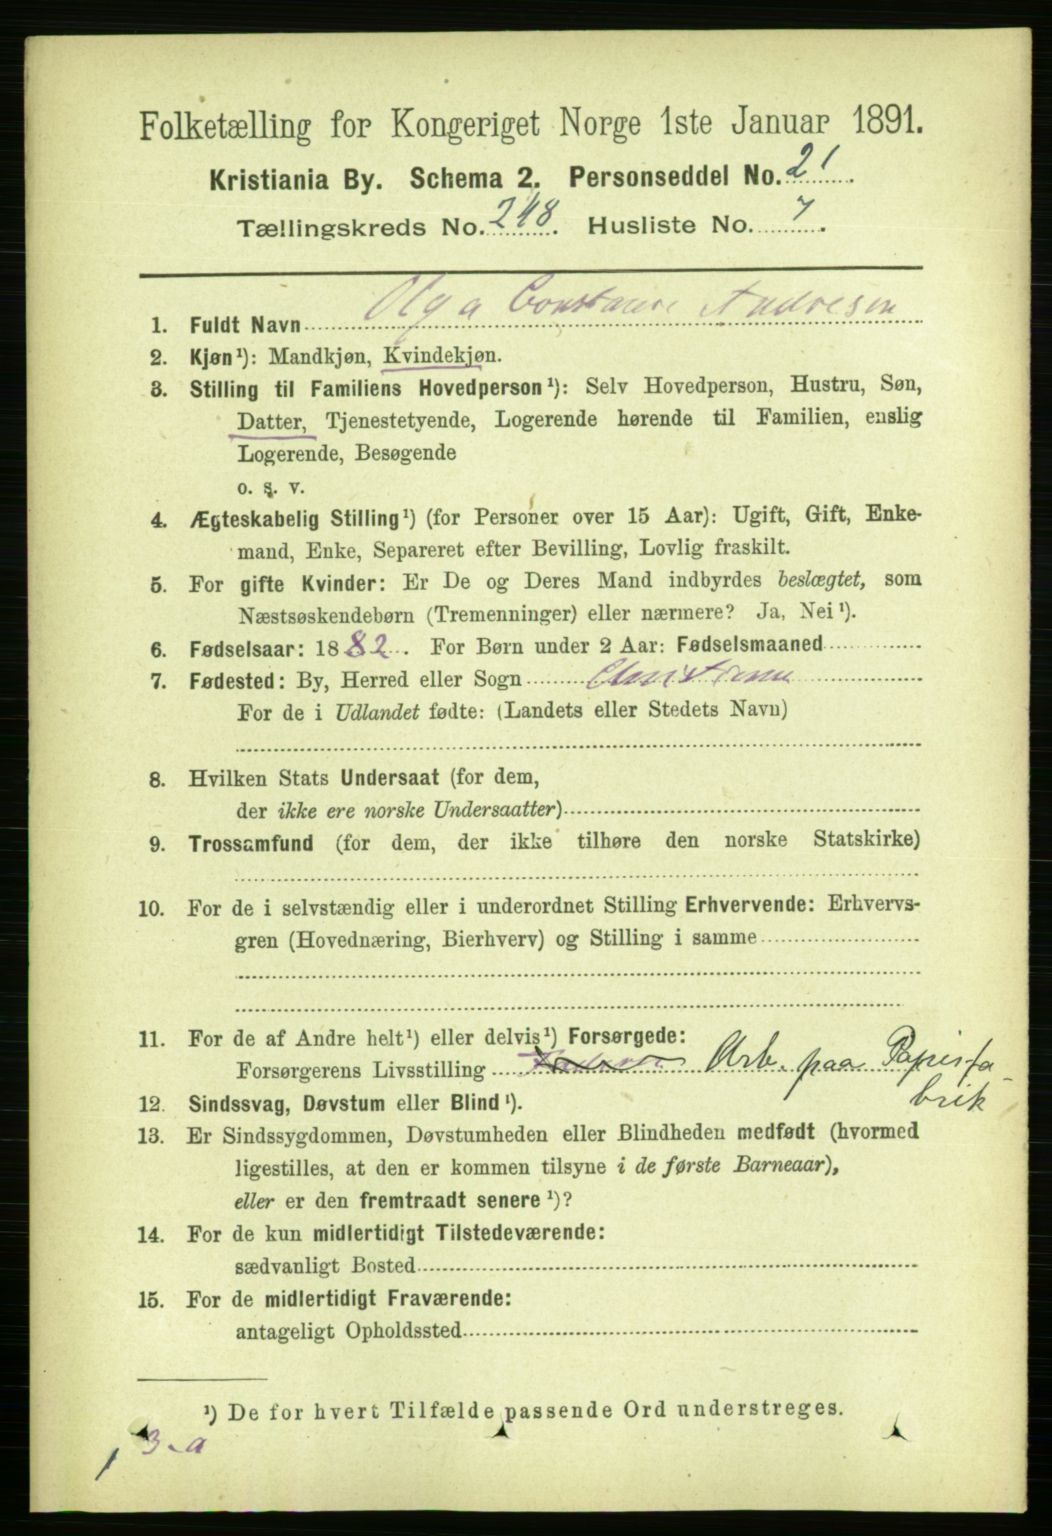 Folketælling for Kongeriget Norge 1ste Januar 1891.
Kristiania By. Schema 2. Personseddel No. 21.
Tællingskreds No. 248. Husliste No. 7.
1. Fuldt Navn Olga Constance Andresen
2. Kjøn¹): Mandkjøn, Kvindekjøn.
3. Stilling til Familiens Hovedperson¹): Selv Hovedperson, Hustru, Søn,
Datter, Tjenestetyende, Logerende hørende til Familien, enslig
Logerende, Besøgende
o. s. v.
4. Ægteskabelig Stilling¹) (for Personer over 15 Aar): Ugift, Gift, Enke-
mand, Enke, Separeret efter Bevilling, Lovlig fraskilt.
5. For gifte Kvinder: Er De og Deres Mand indbyrdes beslægtet, som
Næstsøskendebørn (Tremenninger) eller nærmere? Ja, Nei¹).
6. Fødselsaar: 1882. For Børn under 2 Aar: Fødselsmaaned
7. Fødested: By, Herred eller Sogn Christiania
For de i Udlandet fødte: (Landets eller Stedets Navn)
8. Hvilken Stats Undersaat (for dem,
der ikke ere norske Undersaatter)
9. Trossamfund (for dem, der ikke tilhøre den norske Statskirke)
10. For de i selvstændig eller i underordnet Stilling Erhvervende: Erhvervs-
gren (Hovednæring, Bierhverv) og Stilling i samme
11. For de af Andre helt¹) eller delvis¹) Forsørgede:
Forsørgerens Livsstilling Arb. paa Papirfa-
brik
12. Sindssvag, Døvstum eller Blind¹).
13. Er Sindssygdommen, Døvstumheden eller Blindheden medfødt (hvormed
ligestilles, at den er kommen tilsyne i de første Barneaar),
eller er den fremtraadt senere¹)?
14. For de kun midlertidigt Tilstedeværende:
sædvanligt Bosted
15. For de midlertidigt Fraværende:
antageligt Opholdssted
¹) De for hvert Tilfælde passende Ord understreges.
3-a